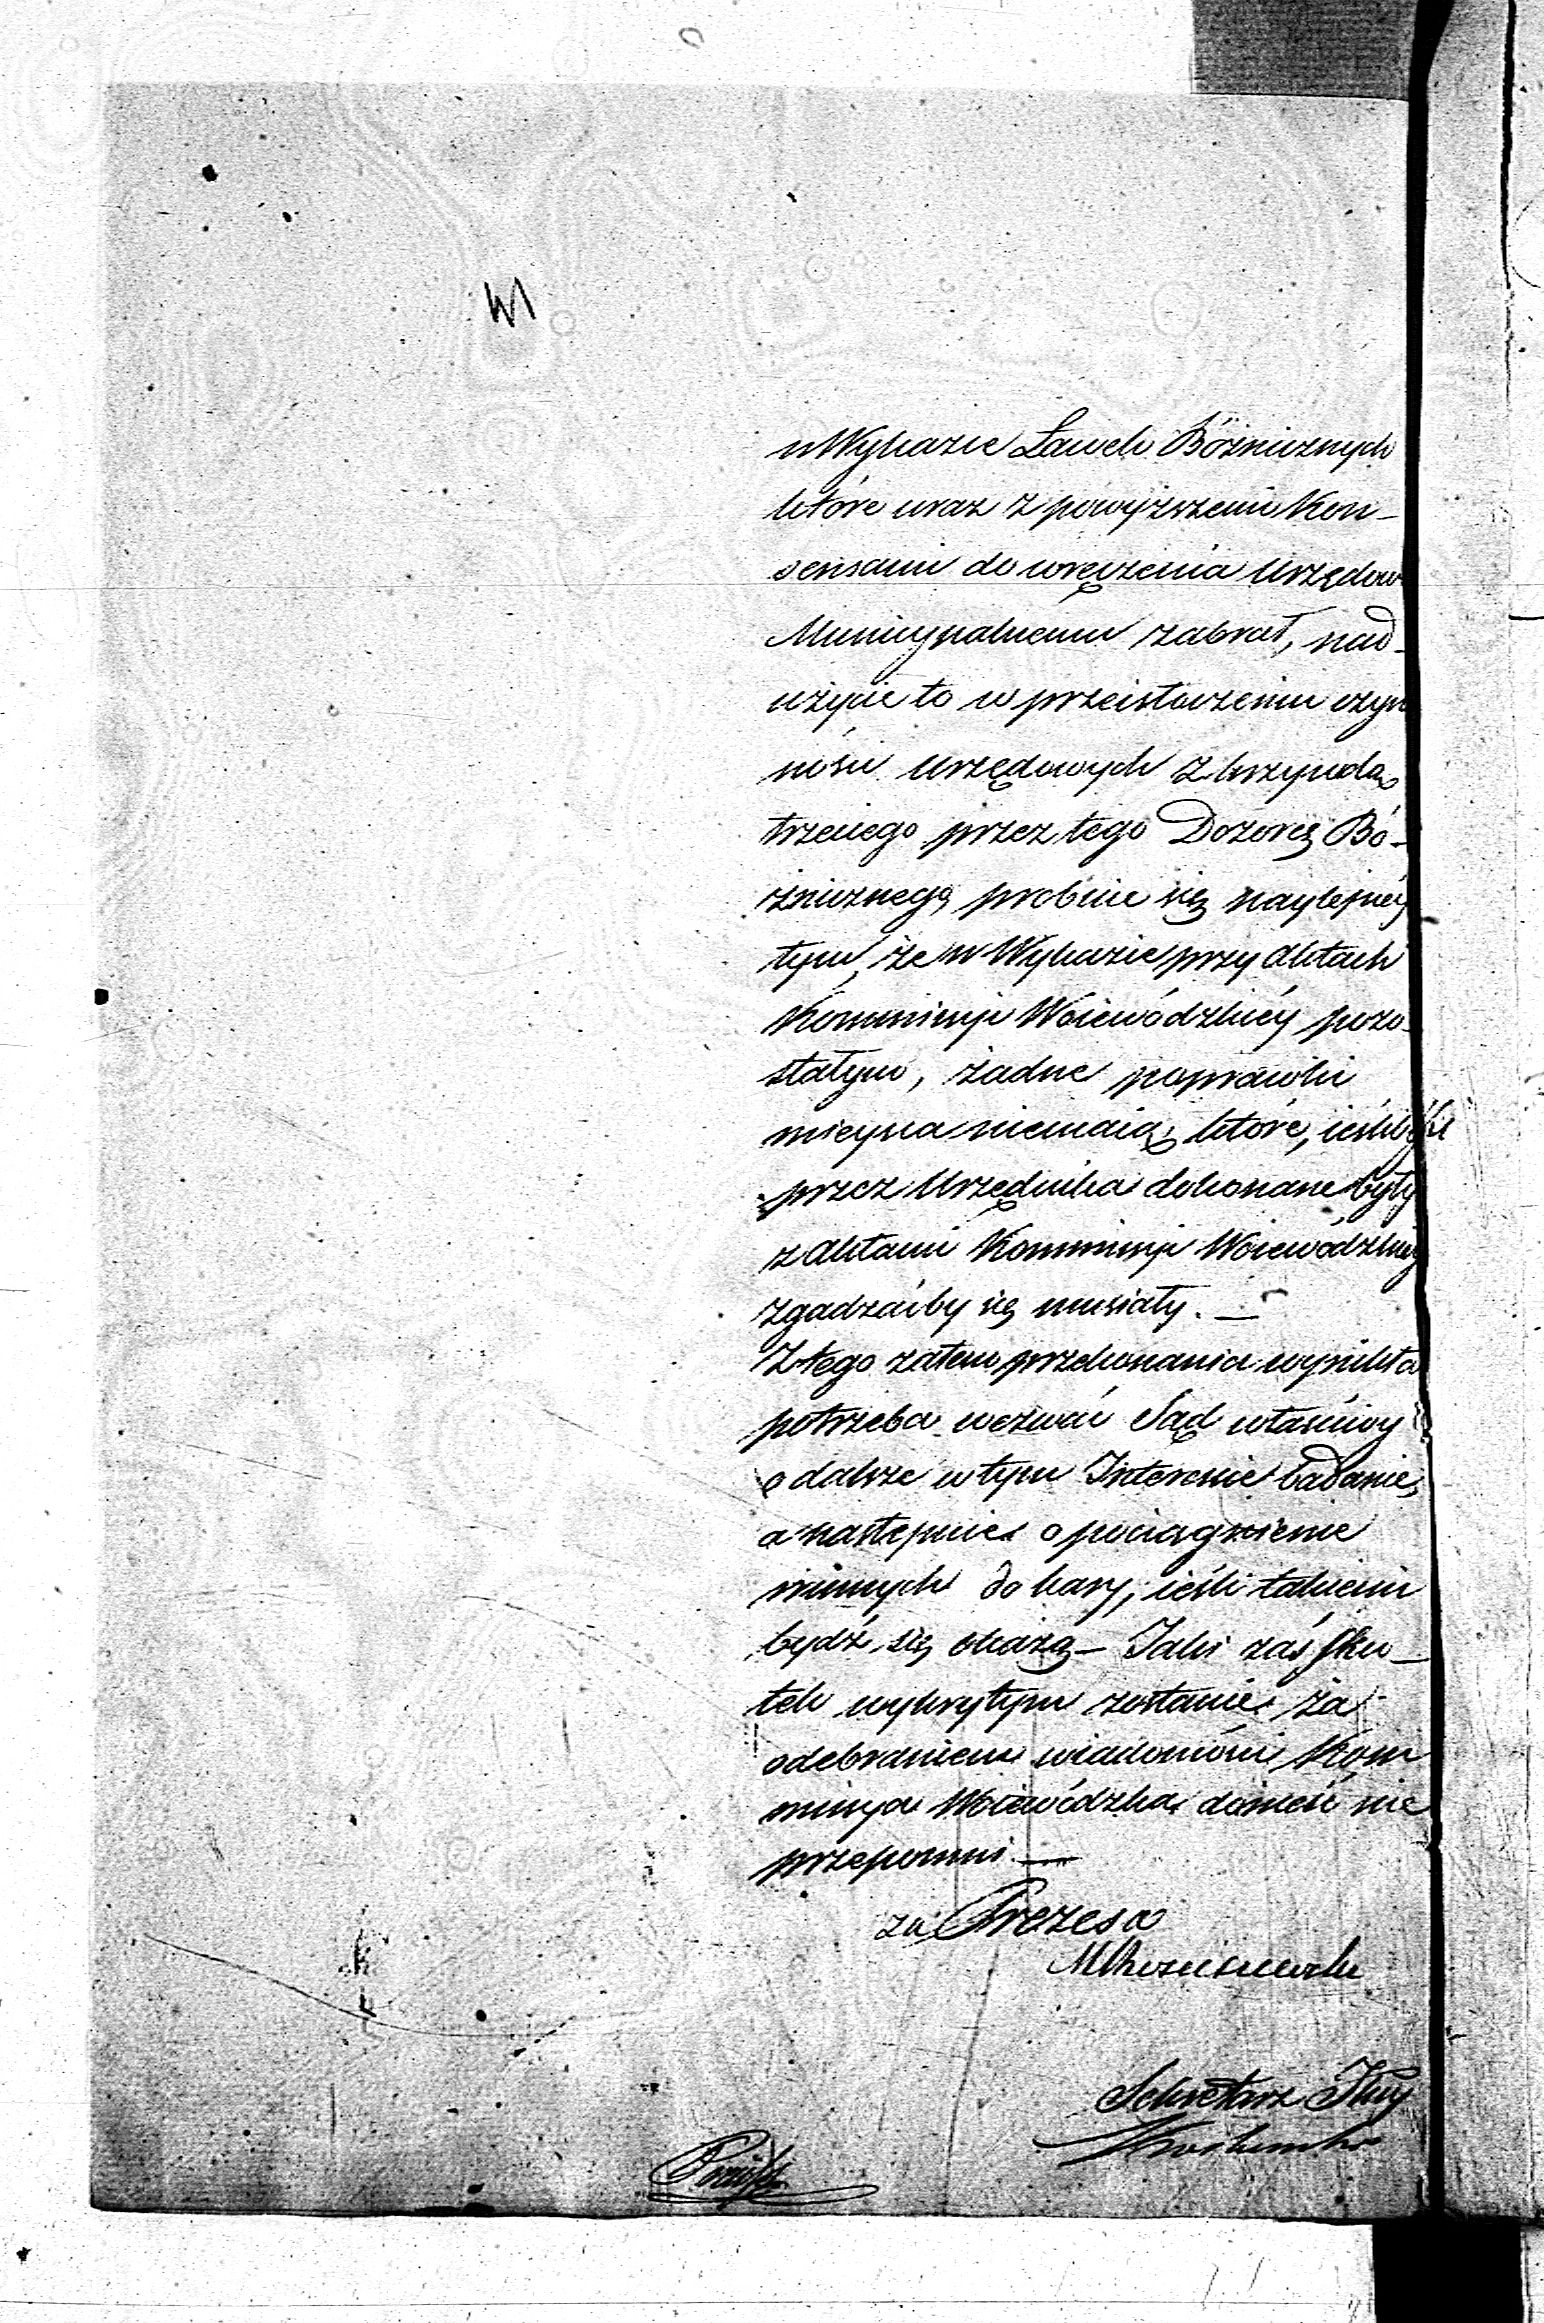 w Wykazie Ławek Bóżnicznych
które wraz z powyższemi Kon-
sensami do wręczenia Urzędow
Municypalnemu zabrał, nad-
użycie to w przeistoczeniu czyn
ności urzędowych z krzywdą
trzeciego przez tego Dozorcę Bó-
żnicznego, probuie się naylepiéy
tym, że w Wykazie przy Aktach
Kommissyi Woiewódzkiéy pozo-
stałym, żadne poprawki
mieysca niemaią, które, ieśliby
przez Urzędnika dokonane były
z Aktami Kommissyi Woiewódzkiéy
zgadzaćby się musiały. —
Z tego zatem przekonania wynikła
potrzeba wezwać Sąd właściwy
o dalsze w tym Interessie badanie,
a następnie o pociągnienie
winnych do kary, ieśli takiemi
bydź się okażą — Jaki zaś sku-
tek wykrytym zostanie za
odebraniem wiadomości Kom
missya Woiewódzka donieść nie
przepomni. —
za Prezesa
Sekretarz